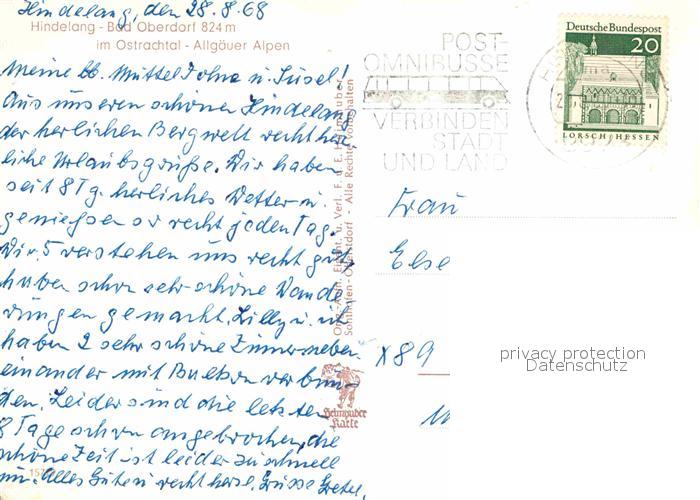 Hindelang, den 28.8.68
Hindelang - Bad Oberdorf 824 m
im Ostrachtal - Allgäuer Alpen
Meine lb. Muttel Johne u. Susel!
Aus unseren schönen Hindelang
der herlichen Bergwelt recht herz-
liche Urlaubsgrüße. Wir haben
seit 8 Tg. herliches Wetter u.
geniehsen so recht jeden Tag.
Wir 5 verstehen uns recht gut,
haben schon sehr schöne Wande
rungen gemacht. Lilly u. ich
haben 2 sehr schöne Zimmer neben
einander mit Balkon verbun-
den. Leider sind die letzten
8 Tage schon angebrochen, die
schöne Zeit ist leider zu schnell
um. Alles Gute u. recht herzl. Grüsse Gretel.
Heimhuber
Karte
POST-
OMNIBUSSE
VERBINDEN
STADT
UND LAND
Deutsche Bundespost
20
LORSCH / HESSEN
Frau
Else
x 89
privacy protection
Datenschutz